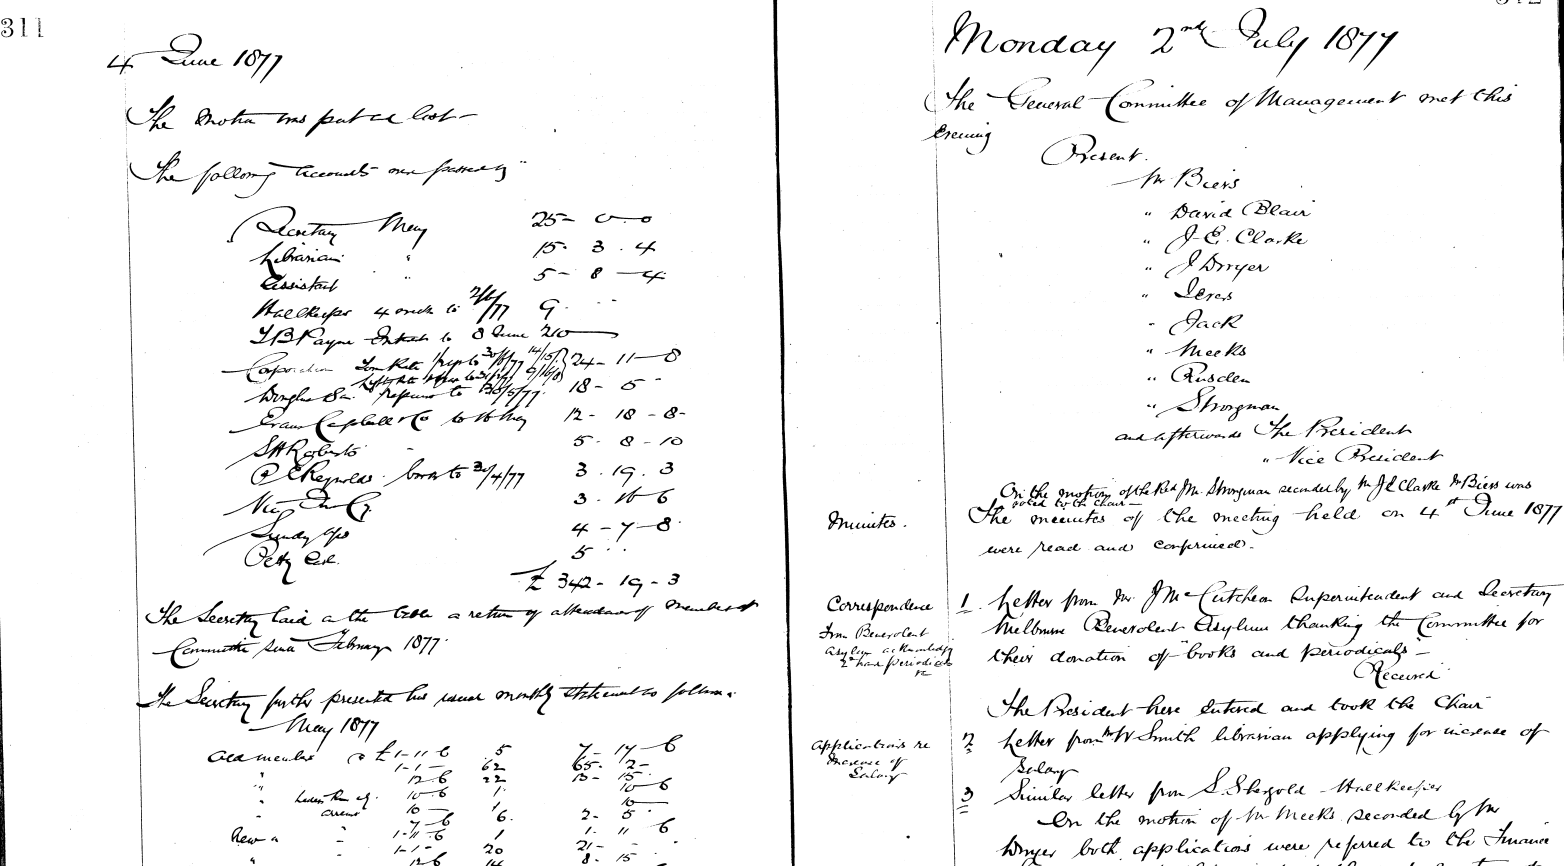 311
4 June 1877
The motion was put & lost
The following accounts were passed
Secretary May 25 - 0 - 0
Librarian " 15 - 3 - 4
Assistant " 5 - 8 - 4
Hallkeeper 4 weeks to 2/6/77 9 " "
T B Payne Interest to 8 June 210
Corporation 24 - 11 - 8
18 - 5 "
Evans Campbell & Co to 16 May 12 - 18 - 8
S H Roberts " 5 - 8 - 10
C E Reynolds books to 30/4/77 3 - 19 - 3
3 - 16 - 6
Sundry a/cs 4 - 7 - 8
Petty Cash 5 " "
£ 342 - 19 - 3
The Secretary laid on the table a return of attendance of members of
Committee since February 1877
The Secretary further presented his usual monthly statement as follows
May 1877
Old members @ £1-11-6 5 7 - 17 - 6
" 1-1- 62 65 - 2 -
" 12-6 22 13 - 15 "
" 10-6 1 10 - 6
" 10 - 1 10
" 7-6 6 2 - 5 "
New " 1-11-6 1 1 - 11 - 6
1-1- 20 21 -
" 12-6 14 8 - 15
Monday 2nd July 1877
The General Committee of Management met this
evening
Present
Mr Biers
" David Blair
" J. E. Clarke
" J Dwyer
" Ievers
" Jack
" Meeks
" Rusden
" Strongman
and afterwards The President
" Vice President
On the motion of the Rd Mr Strongman seconded by Mr J E Clarke Mr Biers was
voted to the chair
Minutes. The minutes of the meeting held on 4th June 1877
were read and confirmed.
Correspondence 1 Letter from Mr J McCutcheon Superintendent and Secretary
From Benevolent Asylum acknowledg 2nd hand periodicals Melbourne Benevolent Asylum thanking the Committee for
their donation of "books and periodicals"
Received
The President here entered and took the Chair
Applications re Increase of Salary 2 Letter from Mr W Smith librarian applying for increase of
Salary
3 Similar letter from S. Shergold Hallkeeper
On the motion of Mr Meeks seconded by Mr
Dwyer both applications were referred to the Finance